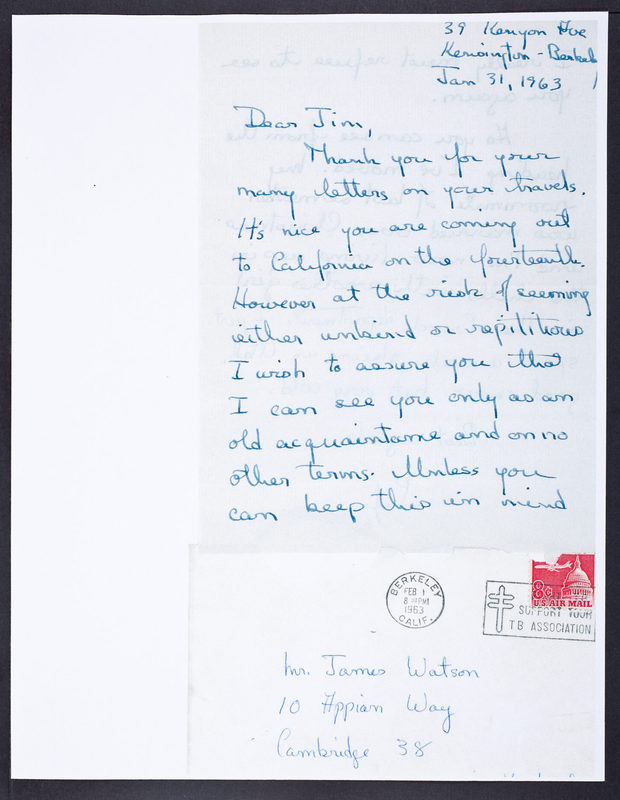 39 Kenyon Ave
Kensington - Berkeley
Jan 31, 1963
Dear Jim,
Thank you for your
many letters on your travels.
It's nice you are coming out
to California on the fourteenth.
However at the risk of seeming
either unkind or repititious
I wish to assure you that
I can see you only as an
old acquaintance and on no
other terms. Unless you
can keep this in mind
BERKELEY
FEB 1
8 PM
1963
CALIF.
8c
U.S. AIR MAIL
SUPPORT YOUR
TB ASSOCIATION
Mr. James Watson
10 Appian Way
Cambridge 38